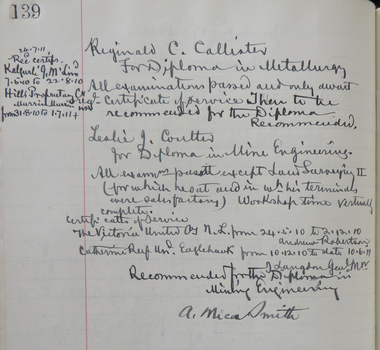 139
24.7.11.
Rec certifs.
Kalgurli G. M.
7.6.10 to 22.8.10
Hills Proprietary Co
from 31.8.10 to 1.7.11
Reginald C. Callister
For Diploma in Metallurgy
All examinations passed and only awaits
Certificate of Service. Then to be
recommended for the Diploma
Recommended.
Leslie J. Coulter
for Diploma in Mine Engineering.
All exams passed except Land Surveying II
(for which he sat and in wh. his terminals
were satisfactory) Workshop time virtually
complete.
Certificates of Service
The Victoria United Co N.L. from 24.5.10 to 2.12.10
Andrew Robertson
Catherine Reef Und. Eaglehawk from 10.12.10 to date 10.6.11
J Langdon Genl Mgr
Recommended for the Diploma in
Mining Engineering
A. Mica Smith